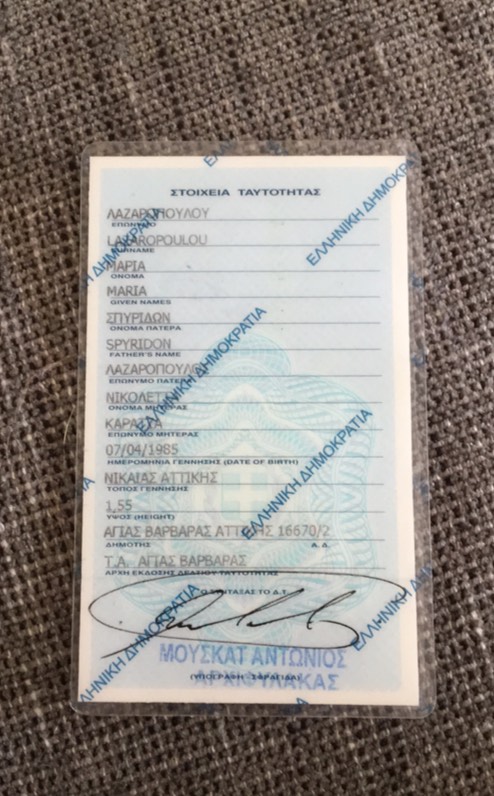 ΣΤΟΙΧΕΙΑ ΤΑΥΤΟΤΗΤΑΣ
ΛΑΖΑΡΟΠΟΥΛΟΥ
ΕΠΩΝΥΜΟ
LAZAROPOULOU
SURNAME
ΜΑΡΙΑ
ΟΝΟΜΑ
MARIA
GIVEN NAMES
ΣΠΥΡΙΔΩΝ
ΟΝΟΜΑ ΠΑΤΕΡΑ
SPYRIDON
FATHER'S NAME
ΛΑΖΑΡΟΠΟΥΛΟΣ
ΕΠΩΝΥΜΟ ΠΑΤΕΡΑ
ΝΙΚΟΛΕΤΤΑ
ΟΝΟΜΑ ΜΗΤΕΡΑΣ
ΕΠΩΝΥΜΟ ΜΗΤΕΡΑΣ
07/04/1985
ΗΜΕΡΟΜΗΝΙΑ ΓΕΝΝΗΣΗΣ (DATE OF BIRTH)
ΝΙΚΑΙΑΣ ΑΤΤΙΚΗΣ
ΤΟΠΟΣ ΓΕΝΝΗΣΗΣ
1,55
ΥΨΟΣ (HEIGHT)
ΑΓΙΑΣ ΒΑΡΒΑΡΑΣ ΑΤΤΙΚΗΣ 16670/2
ΔΗΜΟΤΗΣ Α.Δ.
Τ.Α. ΑΓΙΑΣ ΒΑΡΒΑΡΑΣ
ΑΡΧΗ ΕΚΔΟΣΗΣ ΔΕΛΤΙΟΥ ΤΑΥΤΟΤΗΤΑΣ
Ο ΣΥΝΤΑΞΑΣ ΤΟ Δ.Τ.
ΜΟΥΣΚΑΤ ΑΝΤΩΝΙΟΣ
(ΥΠΟΓΡΑΦΗ ΣΦΡΑΓΙΔΑ)
ΑΡΧΙΦΥΛΑΚΑΣ
ΕΛΛΗΝΙΚΗ ΔΗΜΟΚΡΑΤΙΑ
ΕΛΛΗΝΙΚΗ ΔΗΜΟΚΡΑΤΙΑ
ΕΛΛΗΝΙΚΗ ΔΗΜΟΚΡΑΤΙΑ